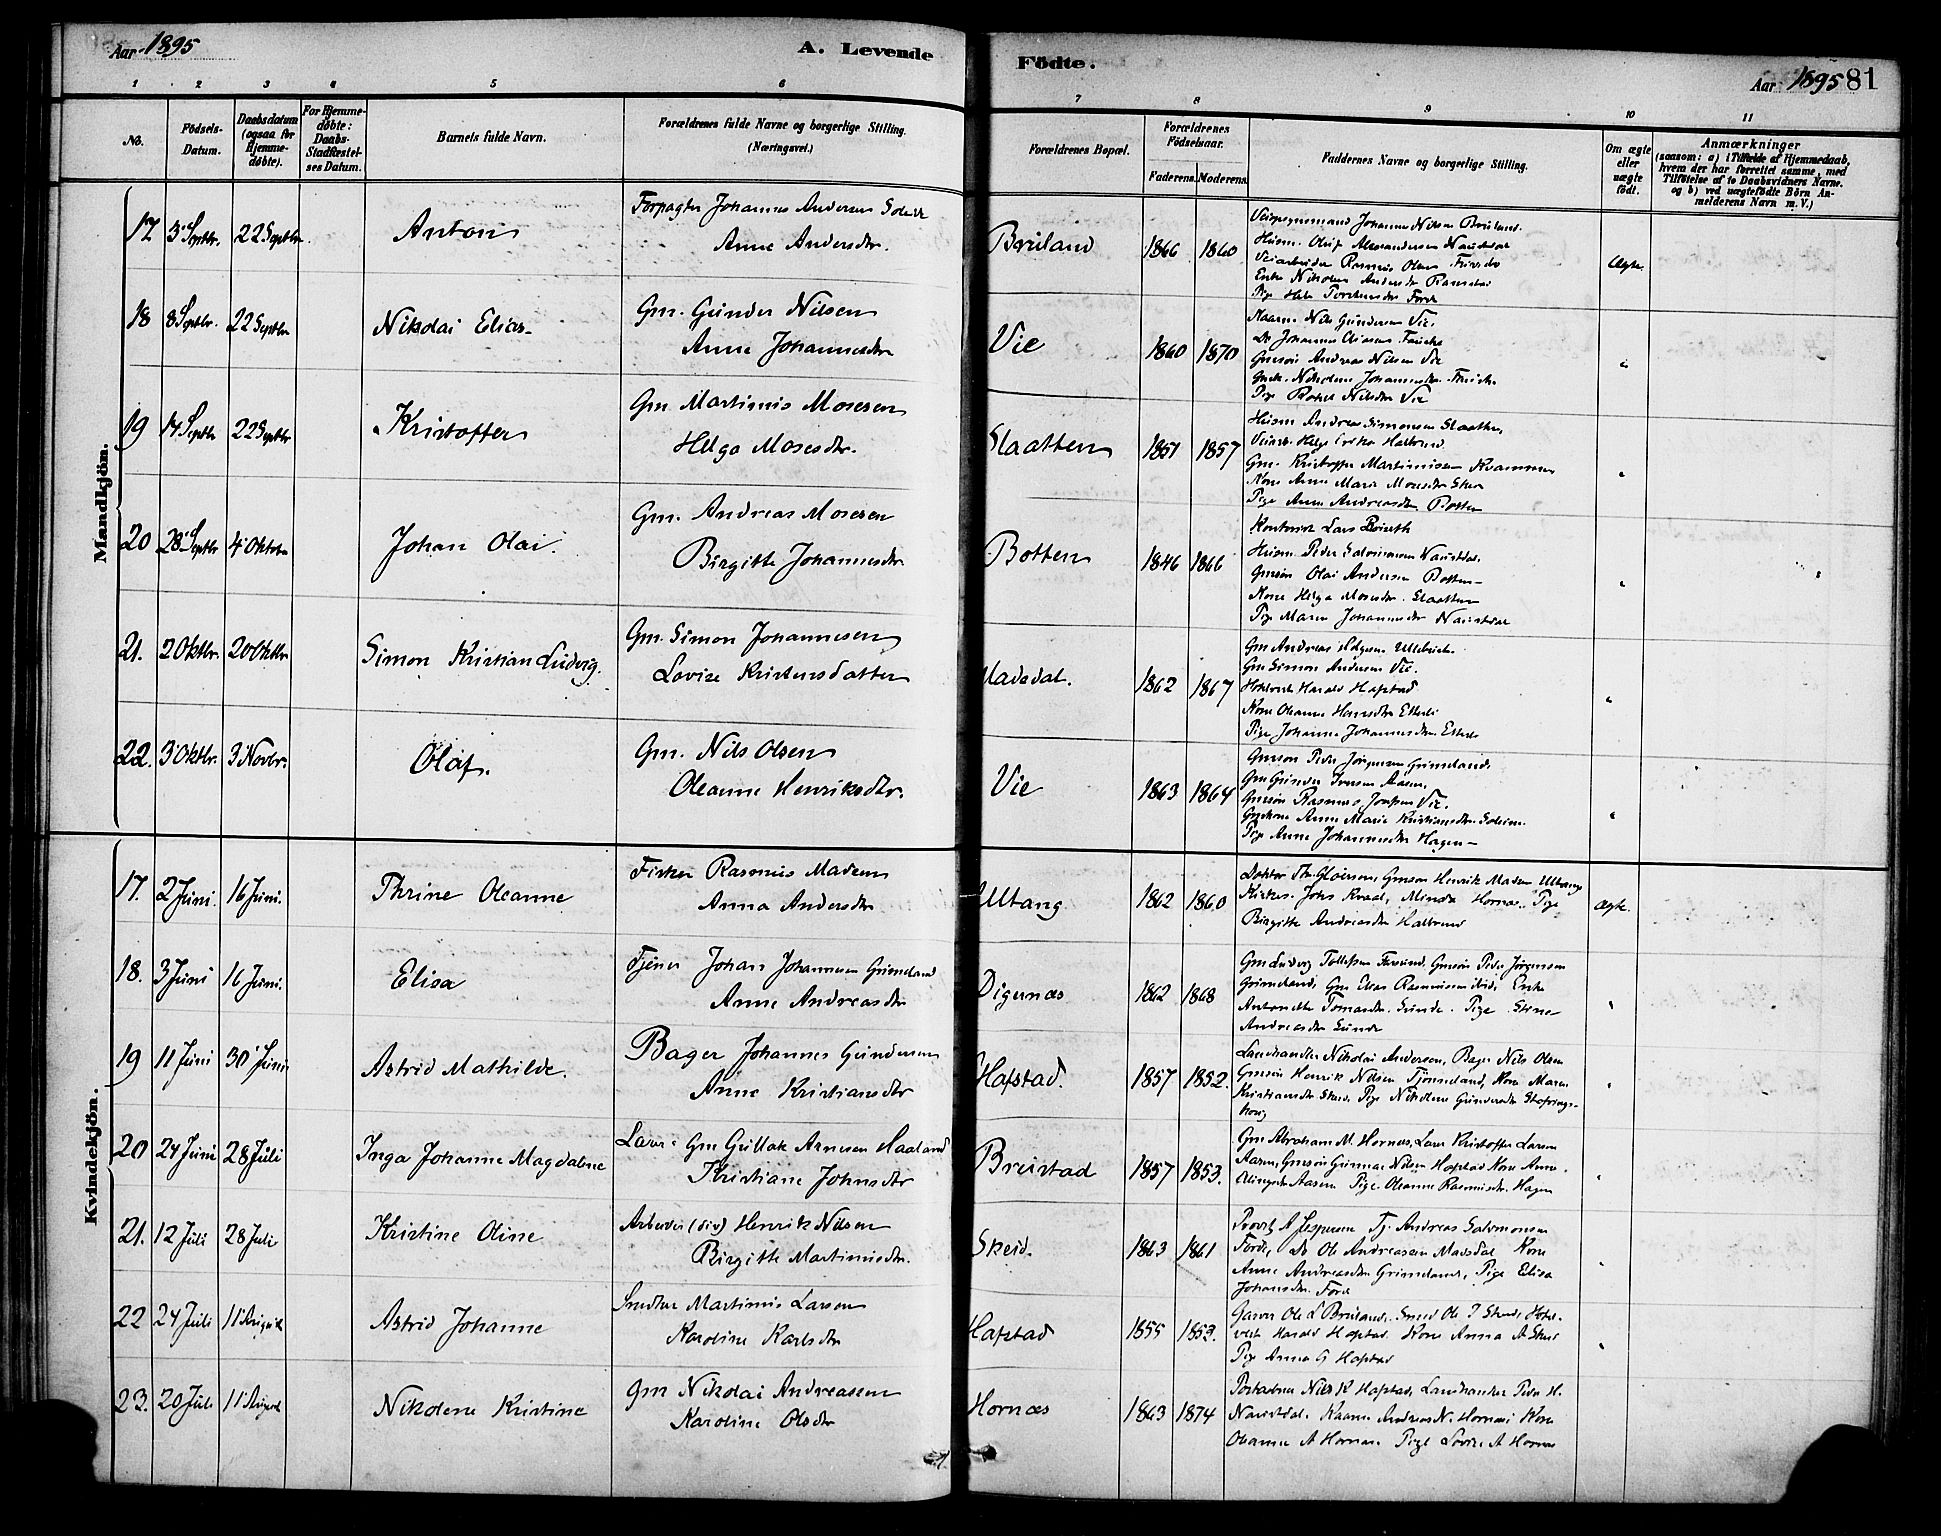 Aar 1895
A. Levende
Födte.
Aar 1895 81
1 2 3 4 5 6
7 8 9 10 11
No.
Födsels-Datum.
Daabsdatum (ogsaa for Hjemmedøbte).
For Hjemmedøbte: Daabs-Stadfæstelses Datum.
Barnets fulde Navn.
Forældrenes fulde Navne og borgerlige Stilling. (Næringsvei.)
Forældrenes Bopæl.
Forældrenes Födselsaar.
Faderens. Moderens.
Faddernes Navne og borgerlige Stilling.
Om ægte eller uægte født.
Anmærkninger
(saasom: a) i Tilfælde af Hjemmedaab, hvem der har forrettet samme, med Tilføielse af to Daabsvidners Navne. og b) ved uægtefødte Börn Anmelderens Navn m. V.)
Mandkjön.
17 3 Septbr. 22 Septbr. Anton
Forpagter Johannes Andersen
Anne Andersdtr.
Bruland 1866 1860
Johannes Nilsen Bruland.
Husm. Oluf Alexandersen Naustdal
Veiarbeider Rasmus Olsen
Enke Nikoline Andersdtr
Pige Førde
Ægte.
18 8 Septbr. 22 Septbr Nikolai Elias
Gm. Gunder Nilsen
Anne Johannesdtr
Vie 1860 1870
Kaarm. Nils Gundersen Vie.
Do Johannes
Gmsön Andreas Nilsen Vie
Nikoline Johannesdtr.
Pige Rakel Nilsdtr Vie
"
19 14 Septbr 22 Septbr Kristoffer
Gm Martinus Mosesen
Helga Mosesdtr.
Slaatten 1851 1857
Husm Andreas Simonsen Slaatten
Veiarb. Helge Halbrend
Gm. Kristoffer Martinussen Kvammen
Kone Anne Marie Mosesdtr Skei
Pige Anne Andreasdtr Botten
"
20 28 Septbr 4 Oktobr Johan Olai.
Gm. Andreas Mosesen
Birgitte Johannesdtr
Botten 1846 1866
Lars
Husm. Peder Salomonsen Naustdal.
Gmsön Olai Andersen Botten
Kone Helga Mosesdtr. Slaatten
Pige Maren Johannesdtr Naustdal
"
21. 2 Oktbr. 20 Oktbr. Simon Kristian Ludvig.
Gm. Simon Johannesen
Lovise Kristensdatter
Madsdal. 1862 1867
Gm Andreas Helgesen
Gm Simon Andersen Vie.
Harald Hafstad
Kone Oleanne Hansdtr
Pige Johanne Johannesdtr.
"
22. 3 Oktbr. 3 Novbr. Olaf.
Gm. Nils Olsen
Oleanne Henriksdtr.
Vie 1863 1864
Gmsön Peder Jörgensen Grimeland.
Gm Gunder Iversen Aasen,
Gmsön Rasmus Vie.
Anne Marie Kristiansdtr. Soleim.
Pige Anne Johannesdtr Hagen
"
Kvindekjön.
17. 2 Juni. 16 Juni. Thrine Oleanne
Fisker Rasmus Madsen
Anna Andersdtr
Ultang 1862 1860
Doktor Gmsön Henrik Madsen Ultang
Johs Kvaal, Minda Hornæs, Pige
Birgitte Andreasdtr Halbrend
Ægte.
18. 3 Juni 16 Juni. Elisa
Tjener Johan Johannesen Grimeland
Anne Andreasdtr
Digernæs 1862 1868
Gm Ludvig Tollefsen Gmsön Peder Jörgensen
Grimeland, Gm Elias Rasmussen ibid, Enke
Antonette Tomasdtr. Sunde. Pige Stine
Andreasdtr Sunde
"
19 11 Juni 30 Juni Astrid Mathilde.
Bager Johannes Gundersen
Anne Kristiansdtr
Hafstad. 1857 1852.
Landhandler Nikolai Andersen, Bager Nils Olsen
Gmsön Henrik Nilsen Tjönneland, Kone Maren
Kristiansdtr Pige Nikoline Gundersdtr
"
20 24 Juni 28 Juli Inga Johanne Magdalene
Gm Gullak Arnesen Haaland
Kristiane Johnsdtr
Brustad 1857 1853.
Gm Abraham M. Hornes, Kristoffer Larsen
Aasen, Gmsön Gunnar Nilsen Hafstad Kone Anne
Aasen Pige Oleanne Rasmusdtr. Hagen
"
21. 12 Juli 28 Juli Kristine Oline
Arbeider (div) Henrik Nilsen
Birgitte Martinusdtr.
Skeid. 1863 1861
Provst A Jespersen Tj. Andreas Salomonsen
Førde, Do Ole Andreasen Madsdal Kone
Anne Andreasdtr Grimeland, Pige Elisa
Johansdtr. Førde
"
22 24 Juli 11 August Astrid Johanne
Snedker Martinus Larsen
Karoline Karlsdtr
Hafstad 1855 1853.
Garver Ole L Bruland. Smed Ole Hotel-
vert Harald Hafstad Kone Anna A Skei
Pige Anna G Hafstad
"
23. 20 Juli 11 August Nikolene Kristine
Gm Nikolai Andreasen
Karoline Olsdtr
Hornæs 1863 1874
Nils K Hafstad, Landhandler Peder H.
Naustdal. Kaarm Andreas N. Hornæs Kone
Oleanne A Hornæs. Pige Lovise A Hornæs